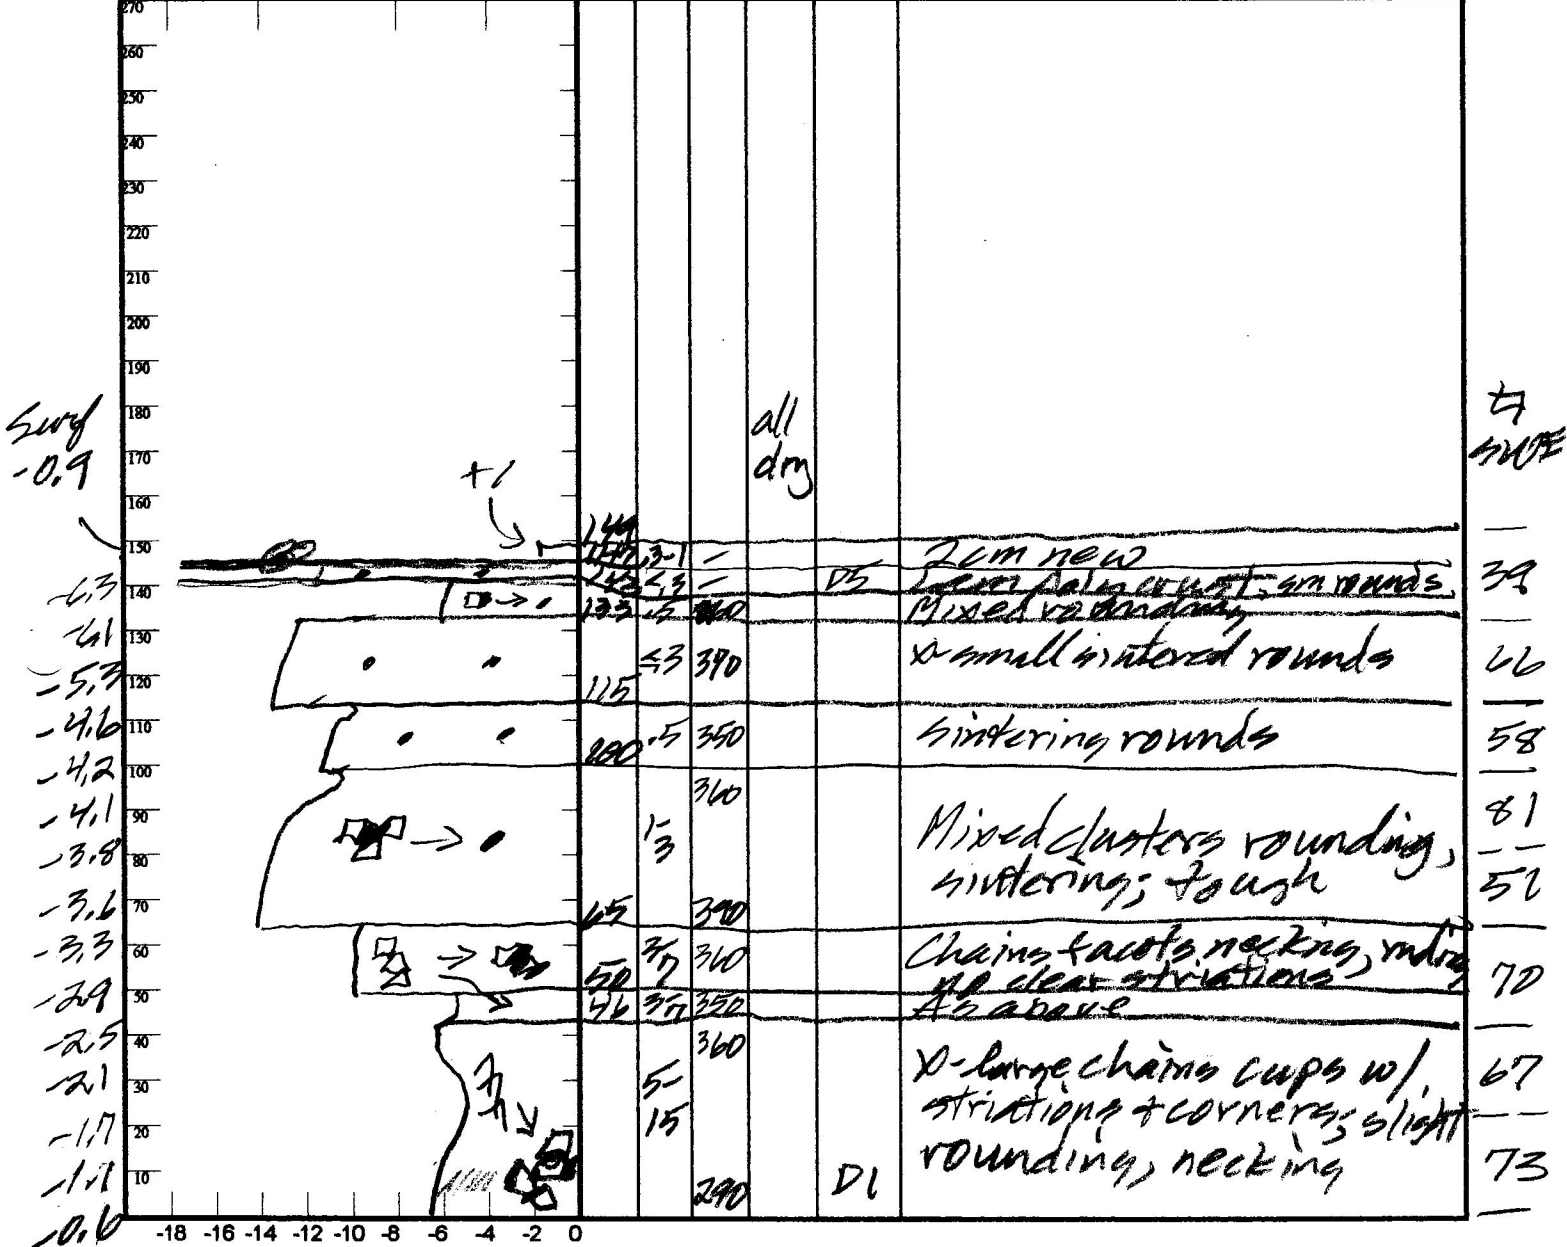 270
260
250
240
230
220
210
200
190
180
170
160
150
140
130
120
110
100
90
80
70
60
50
40
30
20
10
-18 -16 -14 -12 -10 -8 -6 -4 -2 0
Surf
-0.9
-6.3
-6.1
-5.3
-4.6
-4.2
-4.1
-3.8
-3.6
-3.3
-2.9
-2.5
-2.1
-1.7
-0.6
all
dry
149
.3-1 -
2cm new
D5
39
133 .5
Mixed rounding
390
x-small sintered rounds
66
115
.5 350
sintering rounds
58
360
1-
3
Mixed clusters rounding,
sintering; tough
81
65 390
3-
7
360
Chains facets necking,
no clear striations
50
70
46 3-7 350
As above
360
5-
15
X-large chains cups w/
striations + corners; slight
rounding, necking
67
290
D1
73